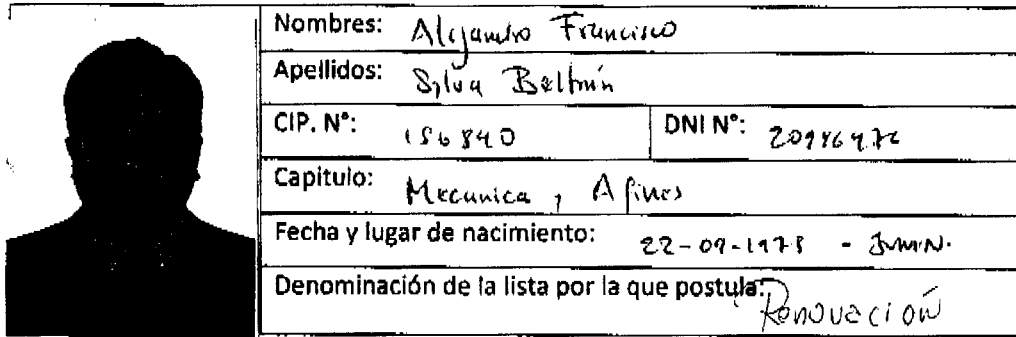 Nombres: Alejandro Francisco
Apellidos: Sylva Beltrán
CIP. N°: 156840 DNI N°:
Capitulo: Mecanica y Afines
Fecha y lugar de nacimiento: - Junin.
Denominación de la lista por la que postula: Renovación